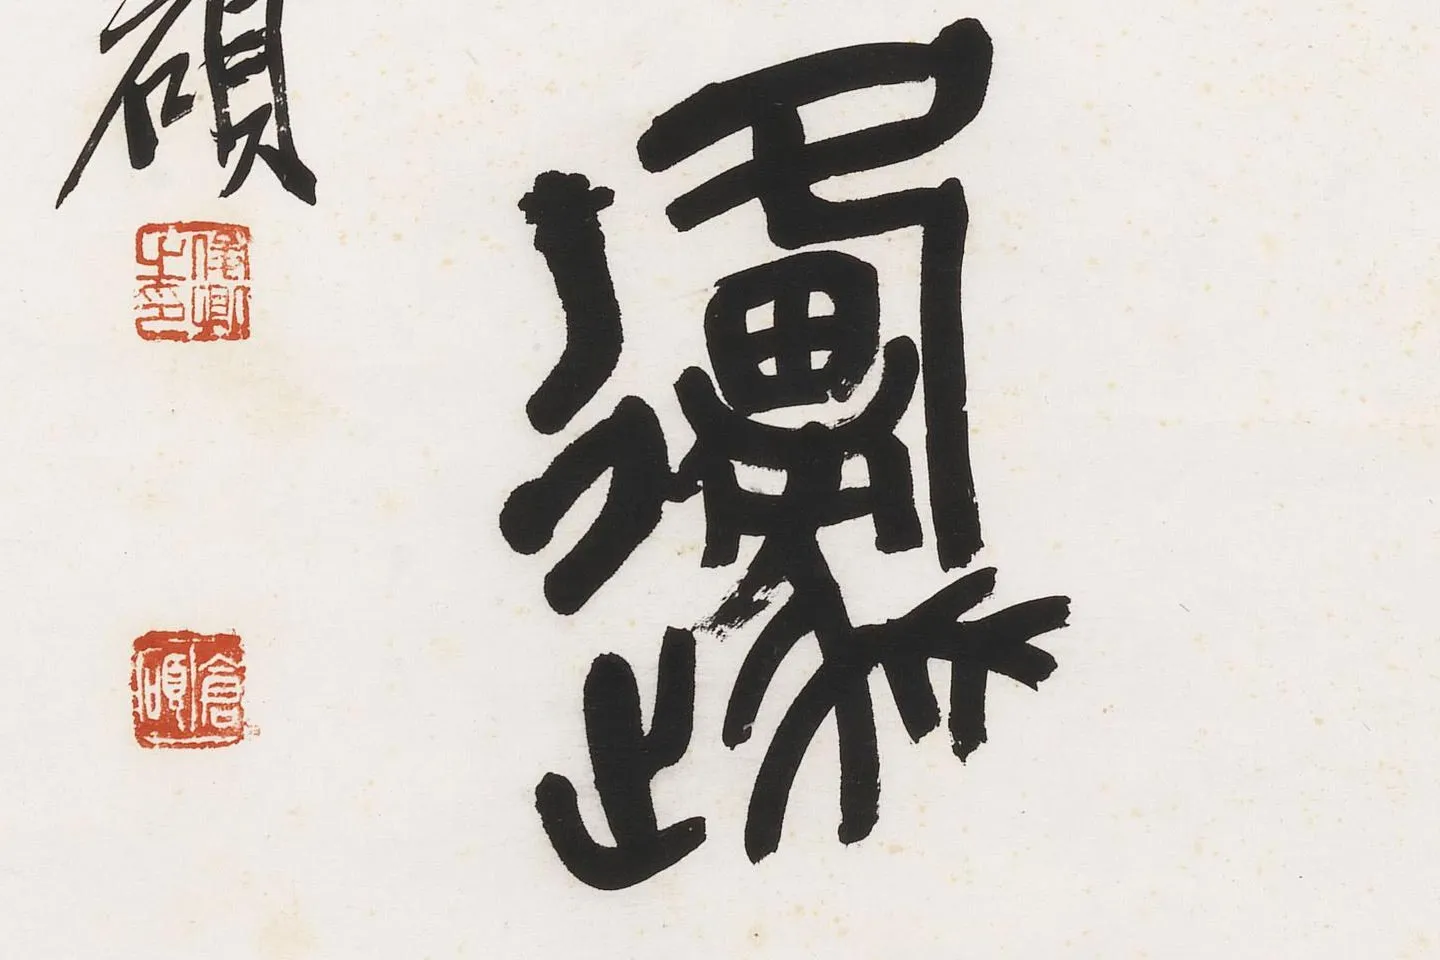 邍
碩
俊卿之印
倉碩